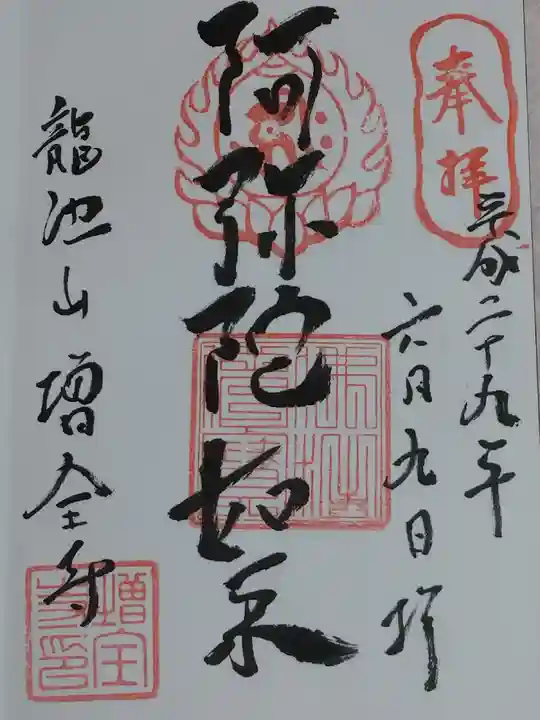 奉拝
平成二十九年
六月九日拝
阿弥陀如来
龍池山増全寺
増全寺印